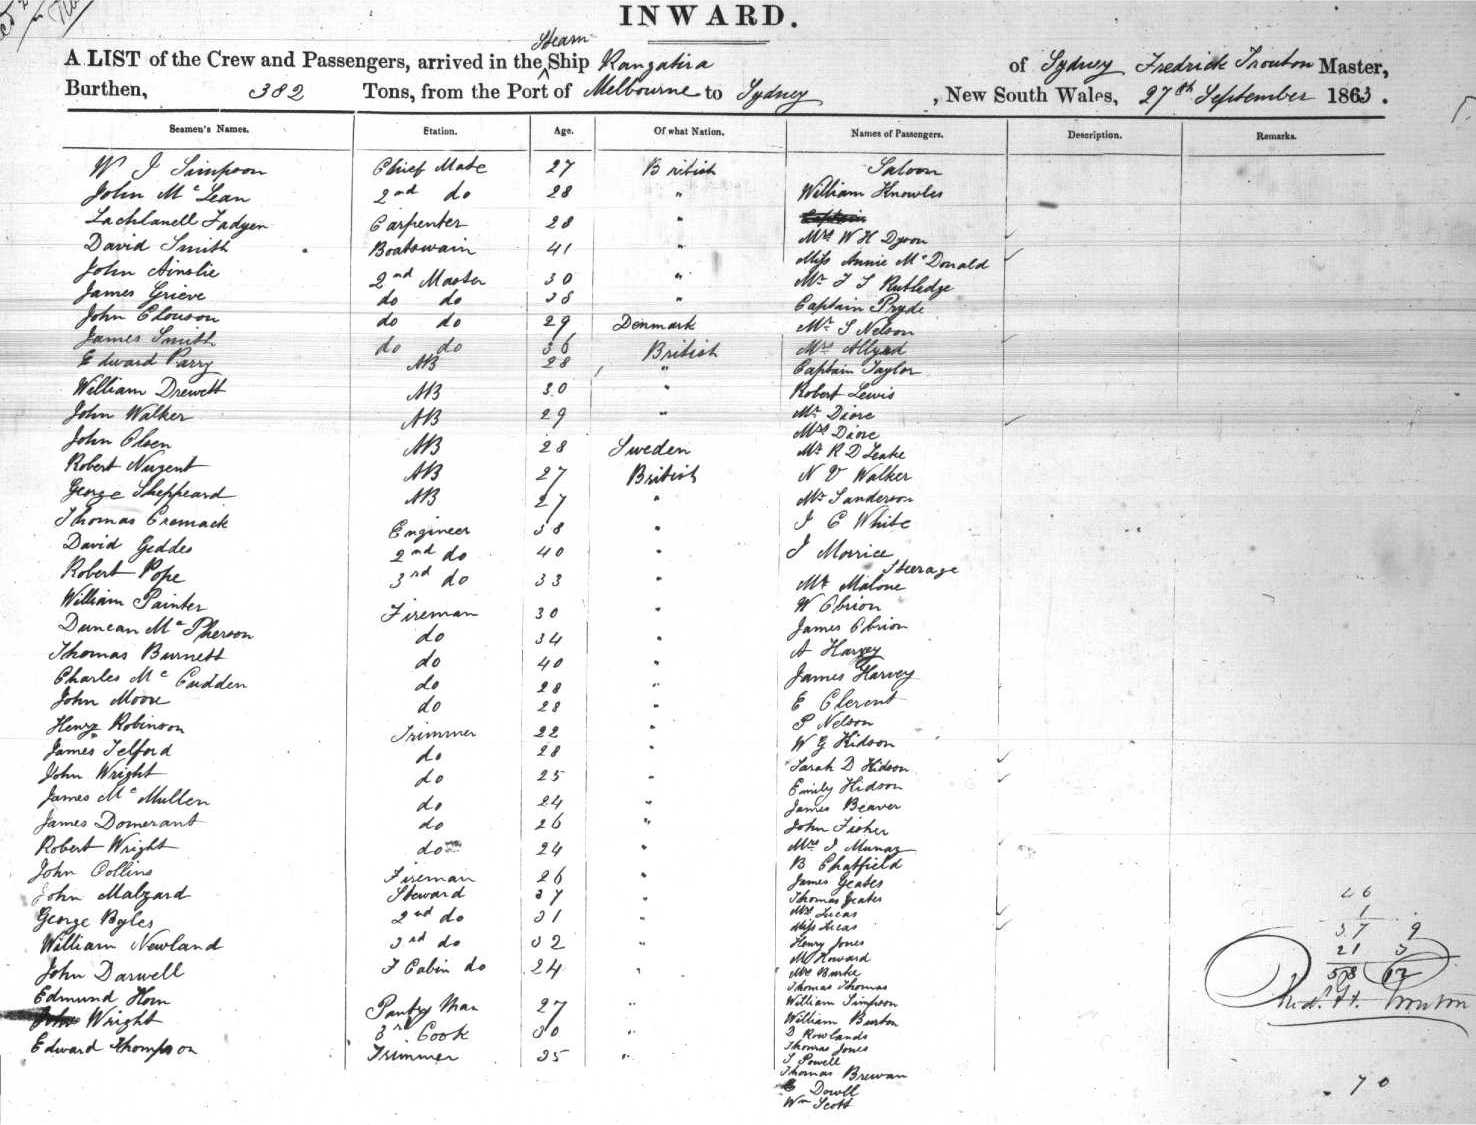 INWARD.
A LIST of the Crew and Passengers, arrived in the Steam Ship Rangatira of Sydney Fredrick Trouton Master,
Burthen, 382 Tons, from the Port of Melbourne to Sydney, New South Wales, 27th September 1863.
Seamen's Names. Station. Age. Of what Nation. Names of Passengers. Description. Remarks.
W J Simpson Chief Mate 27 British Saloon
John Mc Lean 2nd do 28 " William Knowles
Lachlanell Fadyen Carpenter 28 " Captain
David Smith Boatswain 41 " Mrs W H Dyson
John Ainslie 2nd Master 30 " Miss Annie Mc Donald
James Grieve do do 38 " Mr T S Rutledge
John Clouson do do 29 Denmark Captain Pryde
James Smith do do 36 British Mr S Nelson
Edward Parry AB 28 " Mrs Allyad
William Drewett AB 30 " Captain Taylor
John Walker AB 29 " Robert Lewis
John Olsen AB 28 Sweden Mr Diore
Robert Nugent AB 27 British Mrs Diore
George Sheppeard AB 27 " Mr R D Leake
Thomas Cromack Engineer 38 " N V Walker
David Geddes 2nd do 40 " Mr Sanderson
Robert Pope 3rd do 33 " J C White
William Painter Fireman 30 " J Morrice
Duncan Mc Pherson do 34 " Steerage
Thomas Burnett do 40 " Mr Malone
Charles Mc Cudden do 28 " W Obrion
John Moore do 28 " James Obrion
Henry Robinson Trimmer 22 " A Harvey
James Telford do 28 " James Harvey
John Wright do 25 " E Clerent
James Mc Mullen do 24 " P Nelson
James Domerant do 26 " W G Hidson
Robert Wright do 24 " Sarah D Hidson
John Collins Fireman 26 " Emily Hidson
John Malzard Steward 37 " James Beaver
George Byles 2nd do 31 " John Fisher
William Newland 3rd do 32 " Mrs J Munay
John Darwell F Cabin do 24 " B Chatfield
Edmund Horn Pantry Man 27 " James Geates
John Wright 3rd Cook 30 " Thomas Geates
Edward Thompson Trimmer 35 " Mrs Lucas
Miss Lucas
Henry Jones
M Howard
Mr Burke
Thomas Thomas
William Simpson
William Burton
D Rowlands
Thomas Jones
T Powell
Thomas Brewan
Dowll
Wm Scott
1
37 9
21 3
58 12
Fredk H. Trouton
70